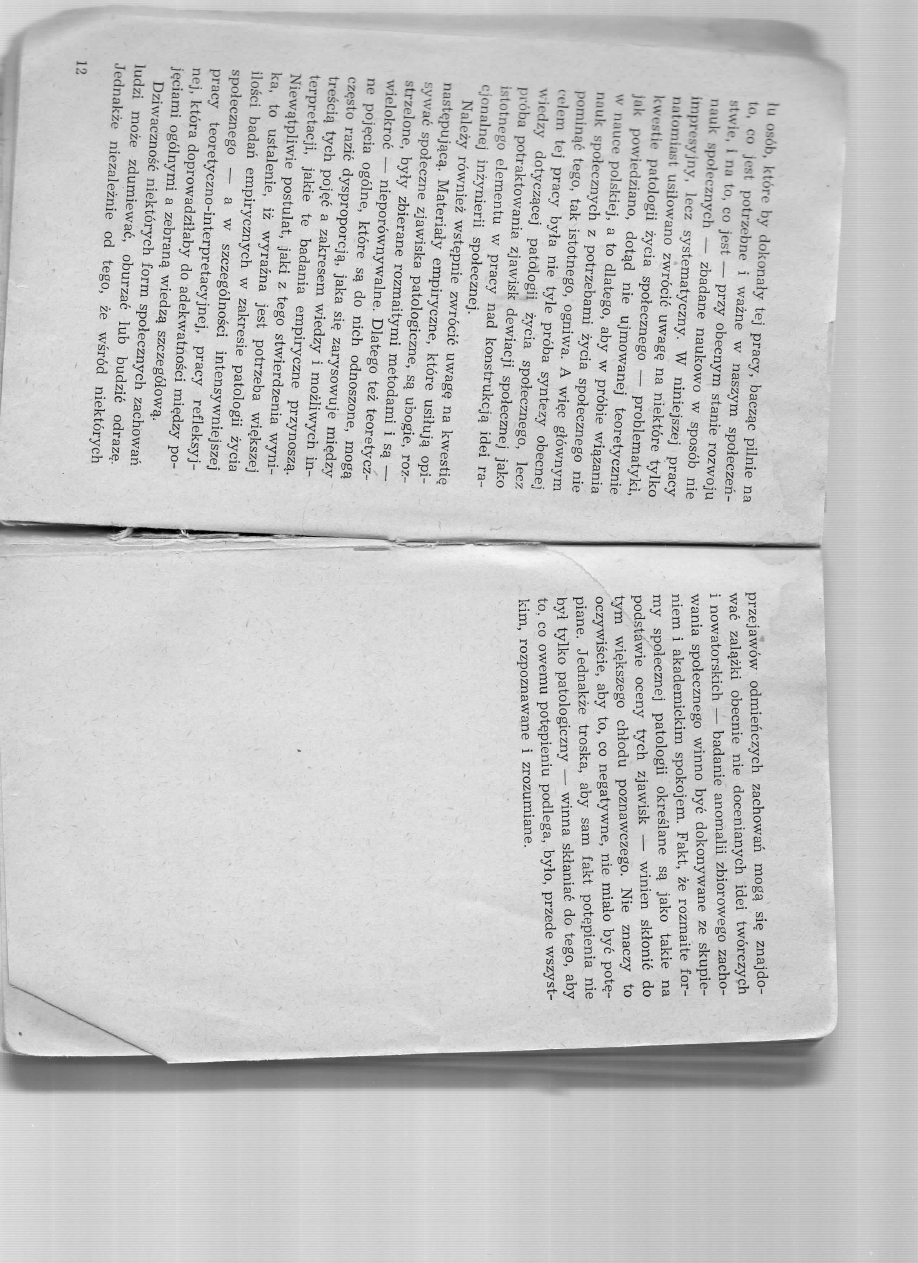 łu osób, które by dokonały tej pracy, bacząc pilnie na
to, co jest potrzebne i ważne w naszym społeczeń-
stwie, i na to, co jest — przy obecnym stanie rozwoju
nauk społecznych — zbadane naukowo w sposób nie
impresyjny, lecz systematyczny. W niniejszej pracy
natomiast usiłowano zwrócić uwagę na niektóre tylko
kwestie patologii życia społecznego — problematyki,
jak powiedziano, dotąd nie ujmowanej teoretycznie
w nauce polskiej, a to dlatego, aby w próbie wiązania
nauk społecznych z potrzebami życia społecznego nie
pominąć tego, tak istotnego, ogniwa. A więc głównym
celem tej pracy była nie tyle próba syntezy obecnej
wiedzy dotyczącej patologii życia społecznego, lecz
próba potraktowania zjawisk dewiacji społecznej jako
istotnego elementu w pracy nad konstrukcją idei ra-
cjonalnej inżynierii społecznej.
Należy również wstępnie zwrócić uwagę na kwestię
następującą. Materiały empiryczne, które usiłują opi-
sywać społeczne zjawiska patologiczne, są ubogie, roz-
strzelone, były zbierane rozmaitymi metodami i są —
wielokroć — nieporównywalne. Dlatego też teoretycz-
ne pojęcia ogólne, które są do nich odnoszone, mogą
często razić dysproporcją, jaka się zarysowuje między
treścią tych pojęć a zakresem wiedzy i możliwych in-
terpretacji, jakie te badania empiryczne przynoszą.
Niewątpliwie postulat, jaki z tego stwierdzenia wyni-
ka, to ustalenie, iż wyraźna jest potrzeba większej
ilości badań empirycznych w zakresie patologii życia
społecznego — a w szczególności intensywniejszej
pracy teoretyczno-interpretacyjnej, pracy refleksyj-
nej, która doprowadziłaby do adekwatności między po-
jęciami ogólnymi a zebraną wiedzą szczegółową.
Dziwaczność niektórych form społecznych zachowań
ludzi może zdumiewać, oburzać lub budzić odrazę.
Jednakże niezależnie od tego, że wśród niektórych
12
przejawów odmieńczych zachowań mogą się znajdo-
wać zalążki obecnie nie docenianych idei twórczych
i nowatorskich — badanie anomalii zbiorowego zacho-
wania społecznego winno być dokonywane ze skupie-
niem i akademickim spokojem. Fakt, że rozmaite for-
my społecznej patologii określane są jako takie na
podstawie oceny tych zjawisk — winien skłonić do
tym większego chłodu poznawczego. Nie znaczy to
oczywiście, aby to, co negatywne, nie miało być potę-
piane. Jednakże troska, aby sam fakt potępienia nie
był tylko patologiczny — winna skłaniać do tego, aby
to, co owemu potępieniu podlega, było, przede wszyst-
kim, rozpoznawane i zrozumiane.